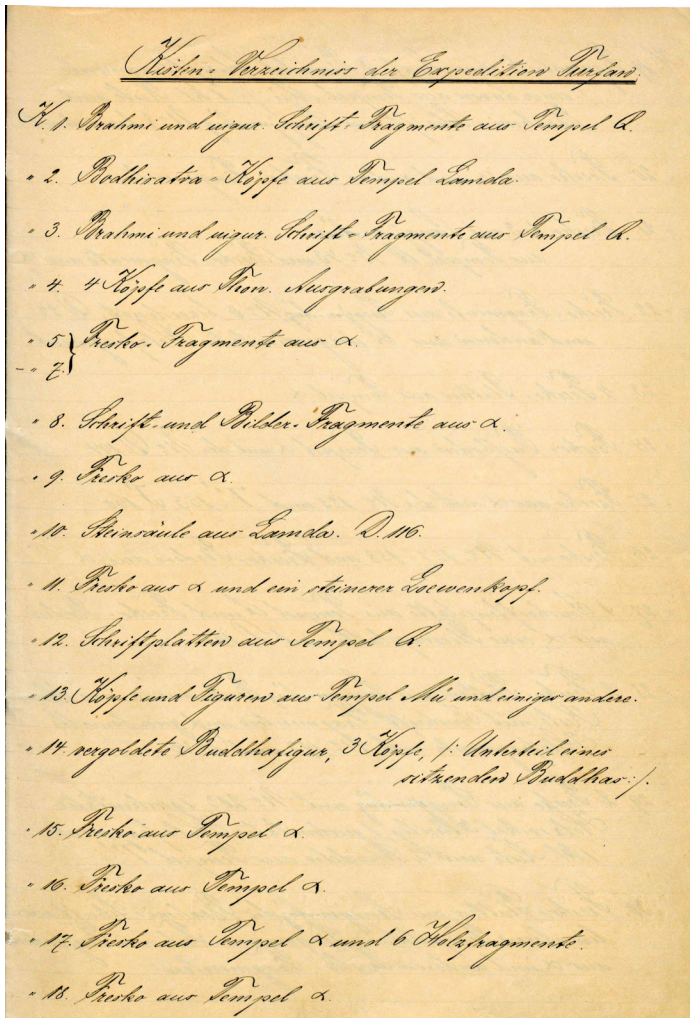 Kisten-Verzeichniss der Expedition Turfan.
K. 1. Brahmi und uigur. Schrift-Fragmente aus Tempel Q.
" 2. Bodhisatva-Köpfe aus Tempel Lamda.
" 3. Brahmi und uigur. Schrift-Fragmente aus Tempel Q.
" 4. 4 Köpfe aus Thon. Ausgrabungen.
" 5 } Fresko-Fragmente aus α.
- " 7.
" 8. Schrift- und Bilder-Fragmente aus α.
" 9. Fresko aus α.
" 10. Steinsäule aus Lamda. D. 116.
" 11. Fresko aus α und ein steinerer Loewenkopf.
" 12. Schriftplatten aus Tempel Q.
" 13. Köpfe und Figuren aus Tempel Mü und einiges andere.
" 14. vergoldete Buddhafigur, 3 Köpfe, /: Unterteil eines
sitzenden Buddhas :/.
" 15. Fresko aus Tempel α.
" 16. Fresko aus Tempel α.
" 17. Fresko aus Tempel α und 6 Holzfragmente.
" 18. Fresko aus Tempel α.